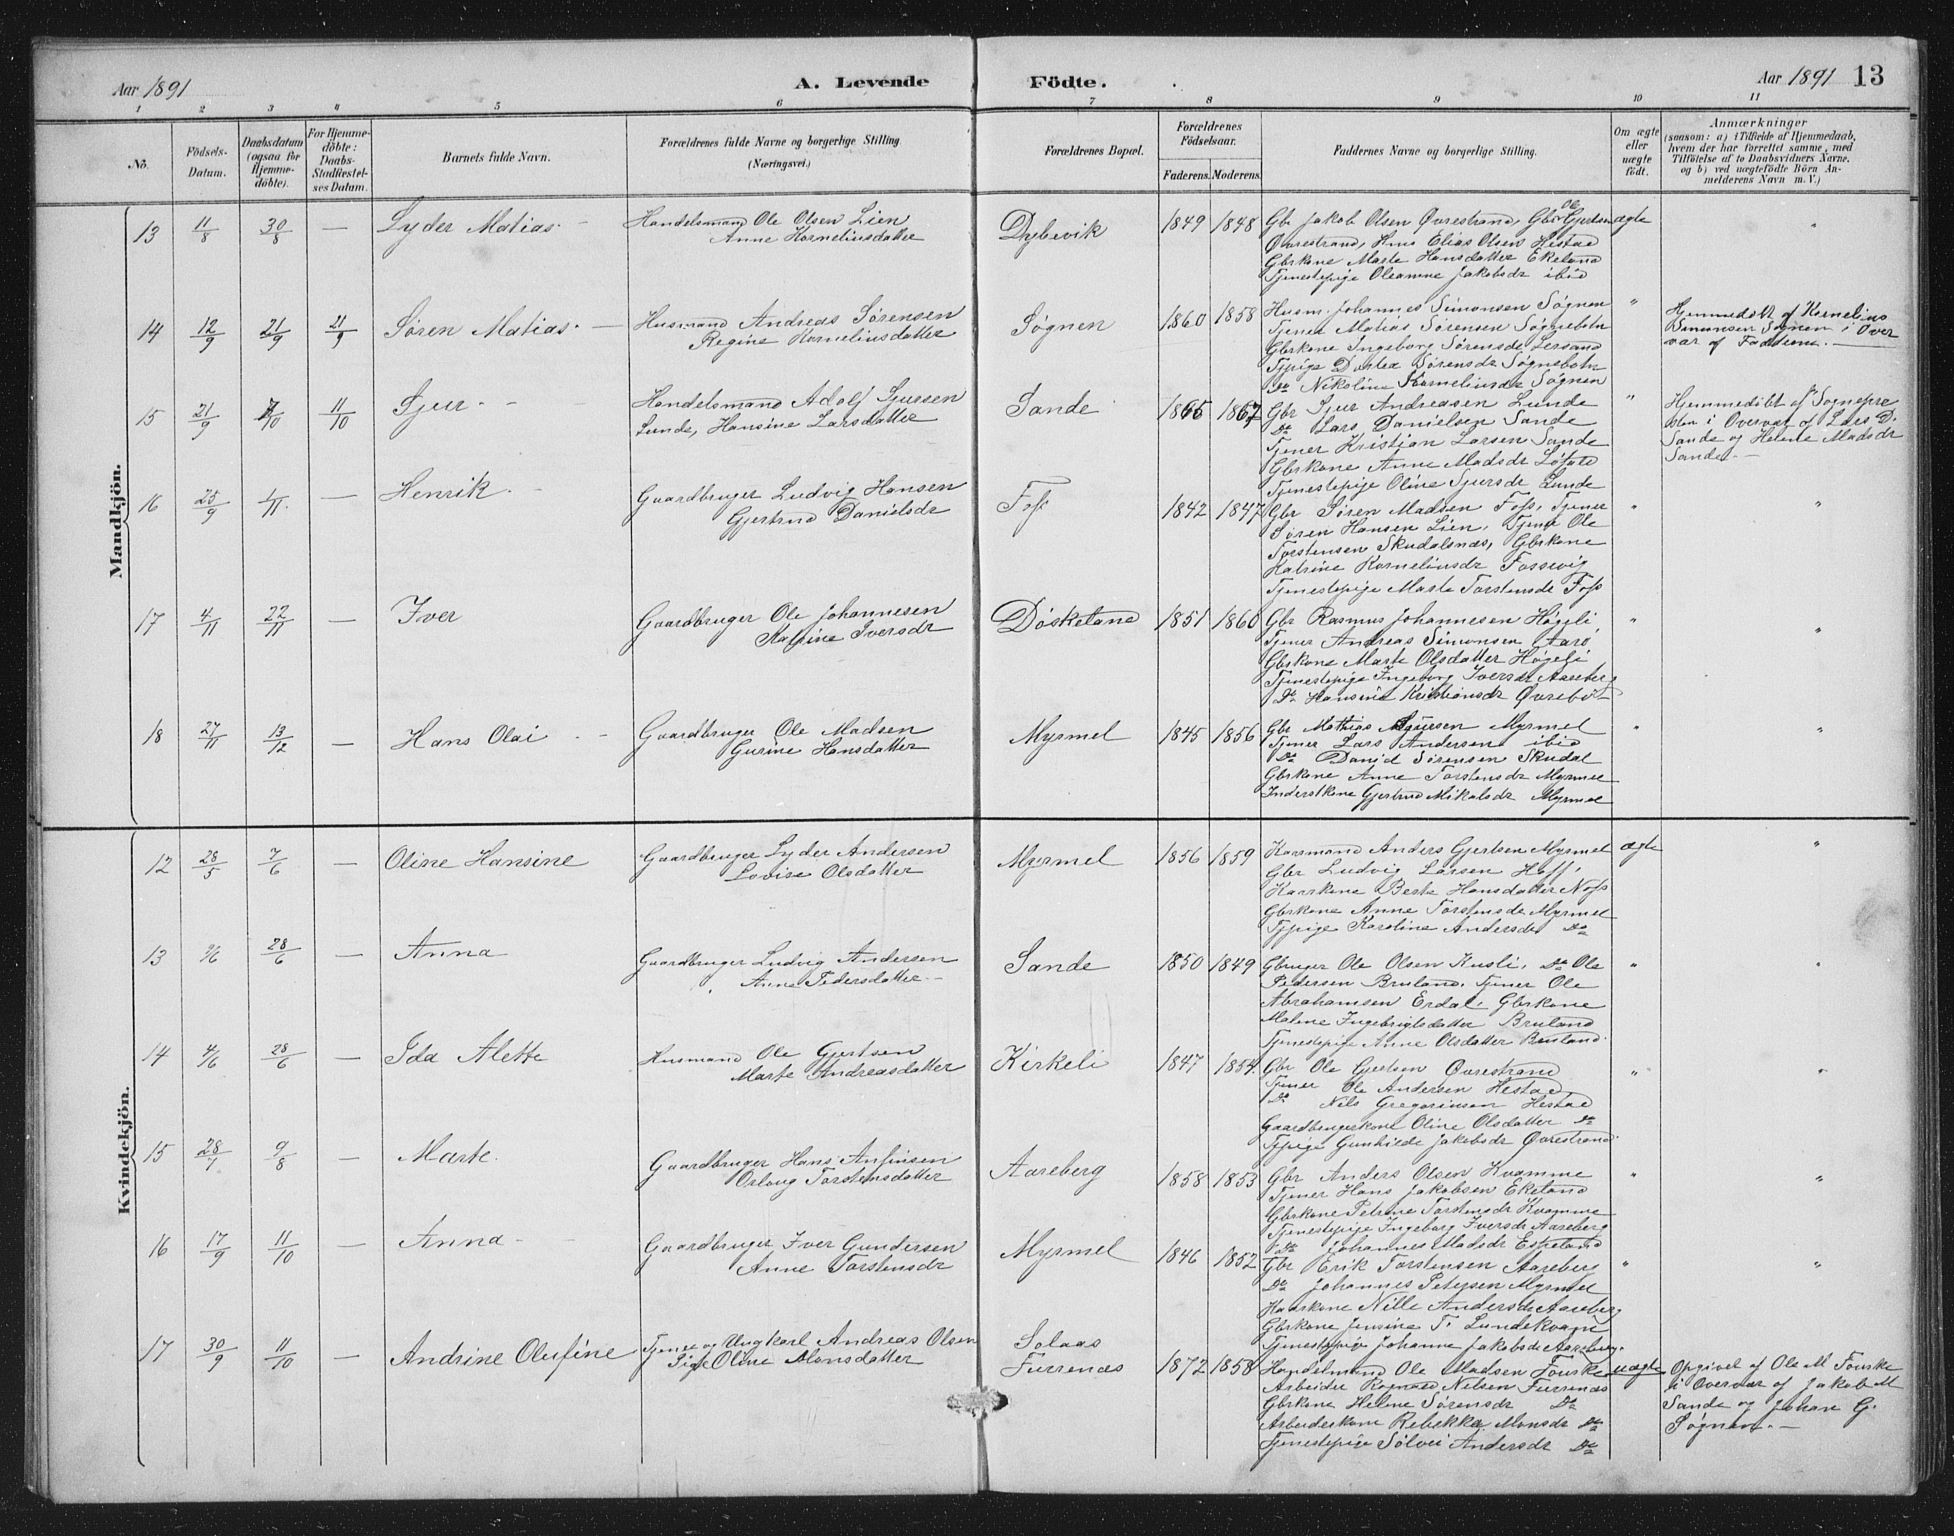 Aar 1891
A. Levende Födte.
Aar 1891 13
1 2 3 4 5 6 7 8 9 10 11
No.
Födsels-Datum.
Daabsdatum (ogsaa for Hjemme-döbte).
For Hjemme-döbte: Daabs-Stadfæstel-ses Datum.
Barnets fulde Navn.
Forældrenes fulde Navne og borgerlige Stilling (Næringsvei.)
Forældrenes Bopæl.
Forældrenes Födselsaar.
Faderens. Moderens.
Faddernes Navne og borgerlige Stilling.
Om ægte eller uægte födt.
Anmærkninger
(saasom: a) i Tilfælde af Hjemmedaab,
hvem der har forrettet samme, med
Tilföielse af to Daabsvidners Navne.
og b) ved uægtefödte Börn An-
melderens Navn m. V.)
Mandkjön.
13 11/8 30/8 — Lyder Matias
Handelsmand Ole Olsen Lien
Anne Kornelinsdatter
Dybevik 1849 1848
Gbr Jakob Olsen Øvrestrand, Gbr Ole Gjertsen
Øvrestrand, Hus Elias Olsen Hestad
Gbrkone Marte Hansdatter Ekeland
Tjenestepige Oleanne Jakobsdr ibid
ægte "
14 12/9 21/9 21/9 Søren Matias. —
Husmand Andreas Sørensen
Regine Kornelinsdatter
Søgnen 1860 1858
Husm. Johannes Simonsen Søgnen
Tjener Matias Sørensen Søgnebotn
Gbrkone Ingeborg Sørensdr Lersand
Tjpige Dortea Sørensdr Søgnebotn
Do Nikoline Kornelinsdr Søgnen
"
Hjemmedøbt af Kornelius
Simonsen Søgnen i Over
vær af Fadderne. —
15 21/9 4/10 11/10 Sjur — —
Handelsmand Adolf Sjursen
Lunde, Hansine Larsdatter
Sande 1865 1867
Gbr Sjur Andreasen Lunde
Do Lars Danielsen Sande
Tjener Kristian Larsen Sande
Gbrkone Anne Madsdr Løfald
Tjenestepige Oline Sjursdr Lunde
"
Hjemmedöbt af Sognepre
sten i Overvær af Lars D.
Sande og Helene Madsdr
Sande. —
16 25/9 1/11 — Henrik. —
Gaardbruger Ludvig Hansen
Gjertrud Danielsdr
Foss 1842 1847
Gbr Søren Madsen Foss, Tjener
Søren Hansen Lien, Tjener Ole
Torstensen Skudalsnæs, Gbrkone
Katrine Kornelinsdr Fossevig
Tjenestepige Marte Torstensdr Foss
" "
17 4/11 22/11 — Iver
Gaardbruger Ole Johannesen
Katrine Iversdr
Døskeland 1851 1860
Gbr Rasmus Johannesen Høgeli,
Tjener Andreas Simonsen Aarø
Gbrkone Marte Olsdatter Høgeli
Tjenestepige Ingeborg Iversdr Aareberg
Do Hansine Kristiansdr Øvrebø —
" "
18 27/11 13/12 — Hans Olai —
Gaardbruger Ole Madsen
Gurine Hansdatter
Myrmel 1845 1856
Gbr Mathias Myrmel
Tjener Lars Andersen ibid
Do David Sørensen Skudal
Gbrkone Anne Torstensdr Myrmel
Inderstkone Gjertrud Mikalsdr Myrmel
" "
Kvindekjön.
12 28/5 7/6 — Oline Hansine
Gaardbruger Lyder Andersen
Lovise Olsdatter
Myrmel 1856 1859
Kaarmand Anders Gjertsen Myrmel
Gbr Ludvig Larsen Hoff,
Kaarkone Berte Hansdatter
Gbrkone Anne Torstensdr Myrmel
Tjpige Karoline Andersdr Do
ægte "
13 9/6 28/6 — Anna
Gaardbruger Ludvig Andersen
Anne Pedersdatter —
Sande 1850 1849
Gbruger Ole Olsen Kusli, Do Ole
Pedersen Bruland, Tjener Ole
Abrahamsen Erdal, Gbrkone
Malene Ingebrigtsdatter Bruland
Tjenestepige Anne Olsdatter Bruland.
" "
14 4/6 28/6 — Ida Alette
Husmand Ole Gjertsen
Marte Andreasdatter
Kirkeli 1847 1854
Gbr Ole Gjertsen Øvrestrand
Tjener Ole Andersen Hestad
Do Nils Gregoriusen Hestad
Gaardbrugerkone Oline Olsdatter Do
Tjpige Gunhilde Jakobsdr Øvrestrand
" "
15 28/7 9/8 — Marte.
Gaardbruger Hans Anfinsen
Orlaug Torstensdatter
Aareberg 1858 1853
Gbr Anders Olsen Kvamme
Tjener Hans Jakobsen Ekeland
Gbrkone Petrine Torstensdr Kvamme
Tjenestepige Ingeborg Iversdr Aareberg
Do Johannes Madsdr Eskeland
" "
16 17/9 11/10 — Anna —
Gaardbruger Iver Gundersen
Anne Torstensdr
Myrmel 1846 1852
Gbr Erik Torstensen Aareberg
Do Johannes Petersen Myrmel
Kaarkone Nille Andersdr Aareberg
Gbrkone Jensine T. Lundekvam
Tjenestepige Johanne Jakobsdr Aareberg
" "
17 30/9 11/10 — Andrine Olufine
Tjener og Ungkarl Andreas Olsen
Pige Oline Monsdatter
Solaas
Furrenæs 1872 1858
Handelsmand Ole Madsen Fourske
Arbeider Ragnald Nilsen Furrenæs
Gbrkone Helene Sørensdr Do
Arbeiderkone Rebekka Monsdr Do
Tjenestepige Sølvei Andersdr Do
uægte
Opgivet af Ole M Fourske
i Overvær af Jakob M
Sande og Johan G.
Søgnen. —